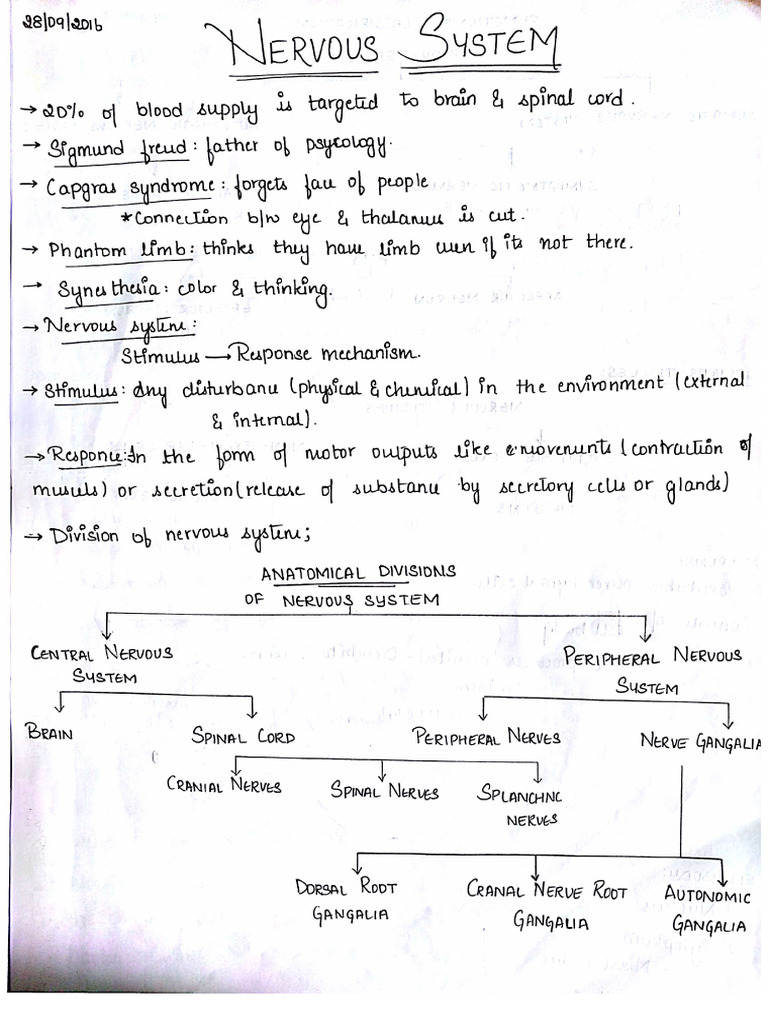 28/09/2016
NERVOUS SYSTEM
→ 20% of blood supply is targeted to brain & spinal cord.
→ Sigmund freud: father of psycology.
→ Capgras syndrome: forgets face of people
*Connection b/w eye & thalamus is cut.
→ Phantom limb: thinks they have limb even if its not there.
→ Synesthesia: color & thinking.
→ Nervous system:
Stimulus → Response mechanism.
→ Stimulus: Any disturbance (physical & chemical) in the environment (external
& internal).
→ Responce: In the form of motor outputs like movements (contraction of
muscles) or secretion (release of substance by secretory cells or glands)
→ Division of nervous system;
ANATOMICAL DIVISIONS
OF NERVOUS SYSTEM
CENTRAL NERVOUS SYSTEM
PERIPHERAL NERVOUS SYSTEM
BRAIN SPINAL CORD PERIPHERAL NERVES NERVE GANGALIA
CRANIAL NERVES SPINAL NERVES SPLANCHNC NERVES
DORSAL ROOT GANGALIA
CRANAL NERVE ROOT GANGALIA
AUTONOMIC GANGALIA